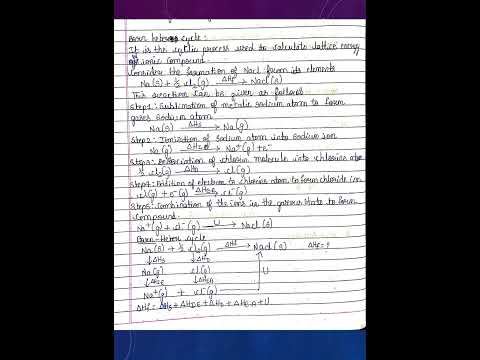 Born haber cycle:
It is the cyclic process used to calculate lattice energy
of ionic compound.
Consider the formation of Nacl from its elements
Na(s) + ½ cl₂(g) —ΔHf→ Nacl(s)
This reaction can be given as follows
Step1: Sublimation of metallic sodium atom to form
gases sodium atom
Na(s) —ΔHs→ Na(g)
Step2: Ionization of sodium atom into sodium ion
Na(g) —ΔHI.E→ Na⁺(g) + e⁻
Step3: Dissociation of chlorine molecule into chlorine atom
½ cl₂(g) —ΔHD→ cl(g)
Step4: Addition of electron to chlorine atom to form chloride ion
cl(g) + e⁻(g) —ΔHE.A→ cl⁻(g)
Step5: Combination of the ions in the gaseous state to form
compound.
Na⁺(g) + cl⁻(g) —U→ Nacl(s)
Born-Heber cycle
Na(s) + ½ cl₂(g) —ΔHf→ Nacl(s) ΔHf = ?
↓ΔHs ↓ΔHD
Na(g) cl(g) U
↓ΔHI.E ↓ΔHEA
Na⁺(g) + cl⁻(g)
ΔHf = ΔHs + ΔHI.E + ΔHD + ΔHE.A + U